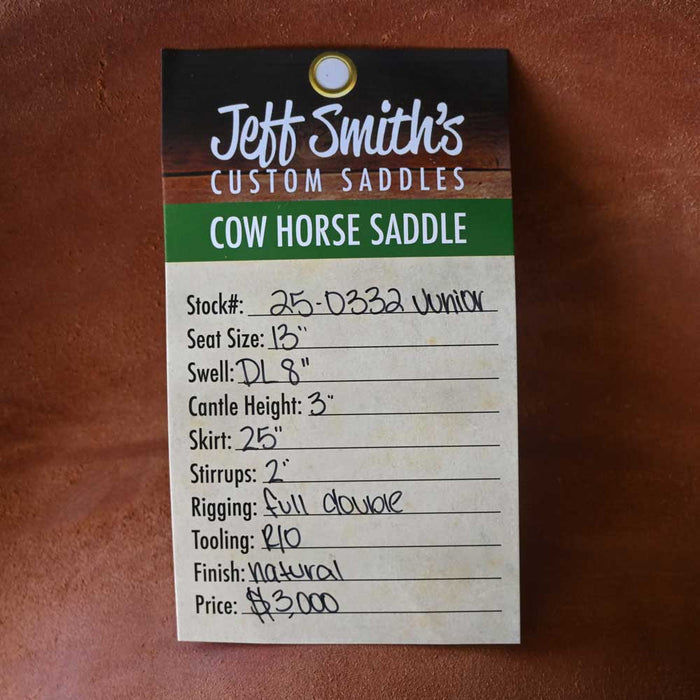 Jeff Smith's
CUSTOM SADDLES
COW HORSE SADDLE
Stock#: 25-0332 Junior
Seat Size: 13"
Swell: DL 8"
Cantle Height: 3"
Skirt: 25"
Stirrups: 2"
Rigging: full double
Tooling: R/O
Finish: natural
Price: $3,000